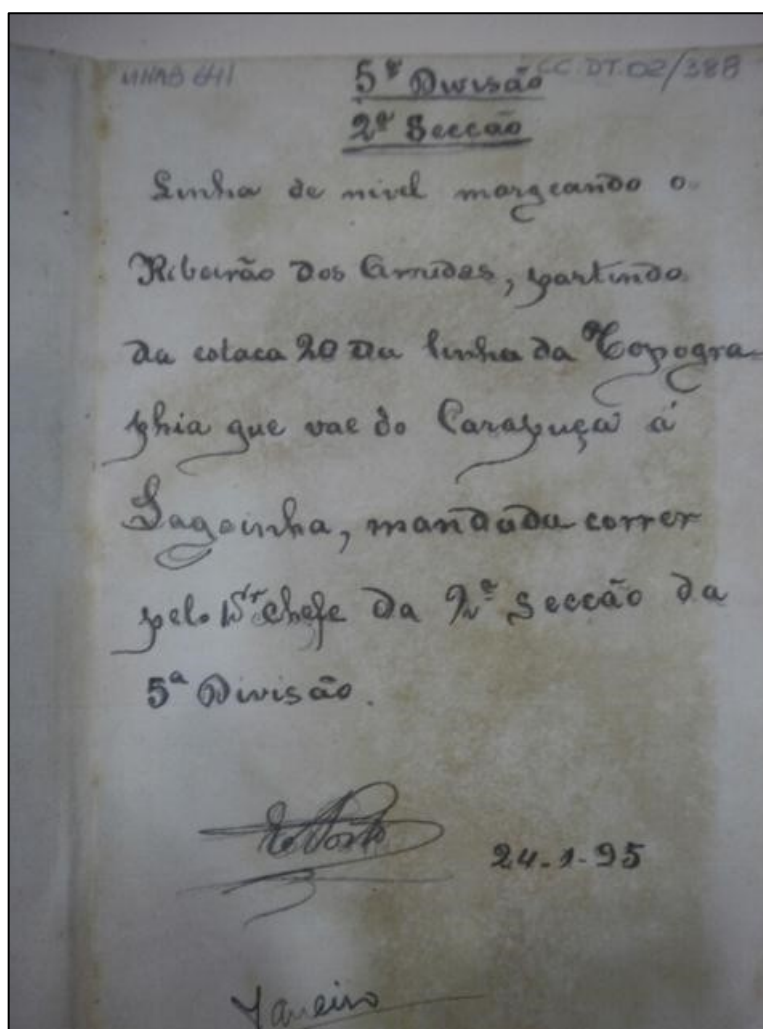 MHAB 641 CC.DT.02/388
5ª Divisão
2ª Secção
Linha de nivel margeando o
Ribeirão dos Arrudas, partindo
da estaca 20 da linha da Topogra-
phia que vae do Carapuça á
Lagoinha, mandada correr
pelo Dr Chefe da 2ª Secção da
5ª Divisão.
Porto
24-1-95
Janeiro